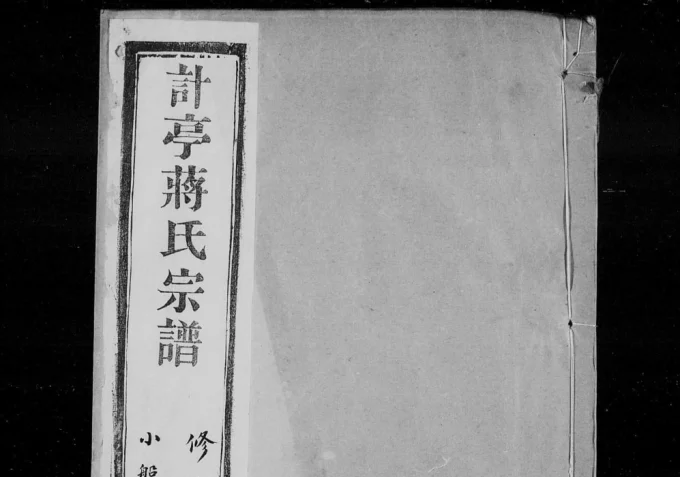 計亭蔣氏宗譜
修
小船